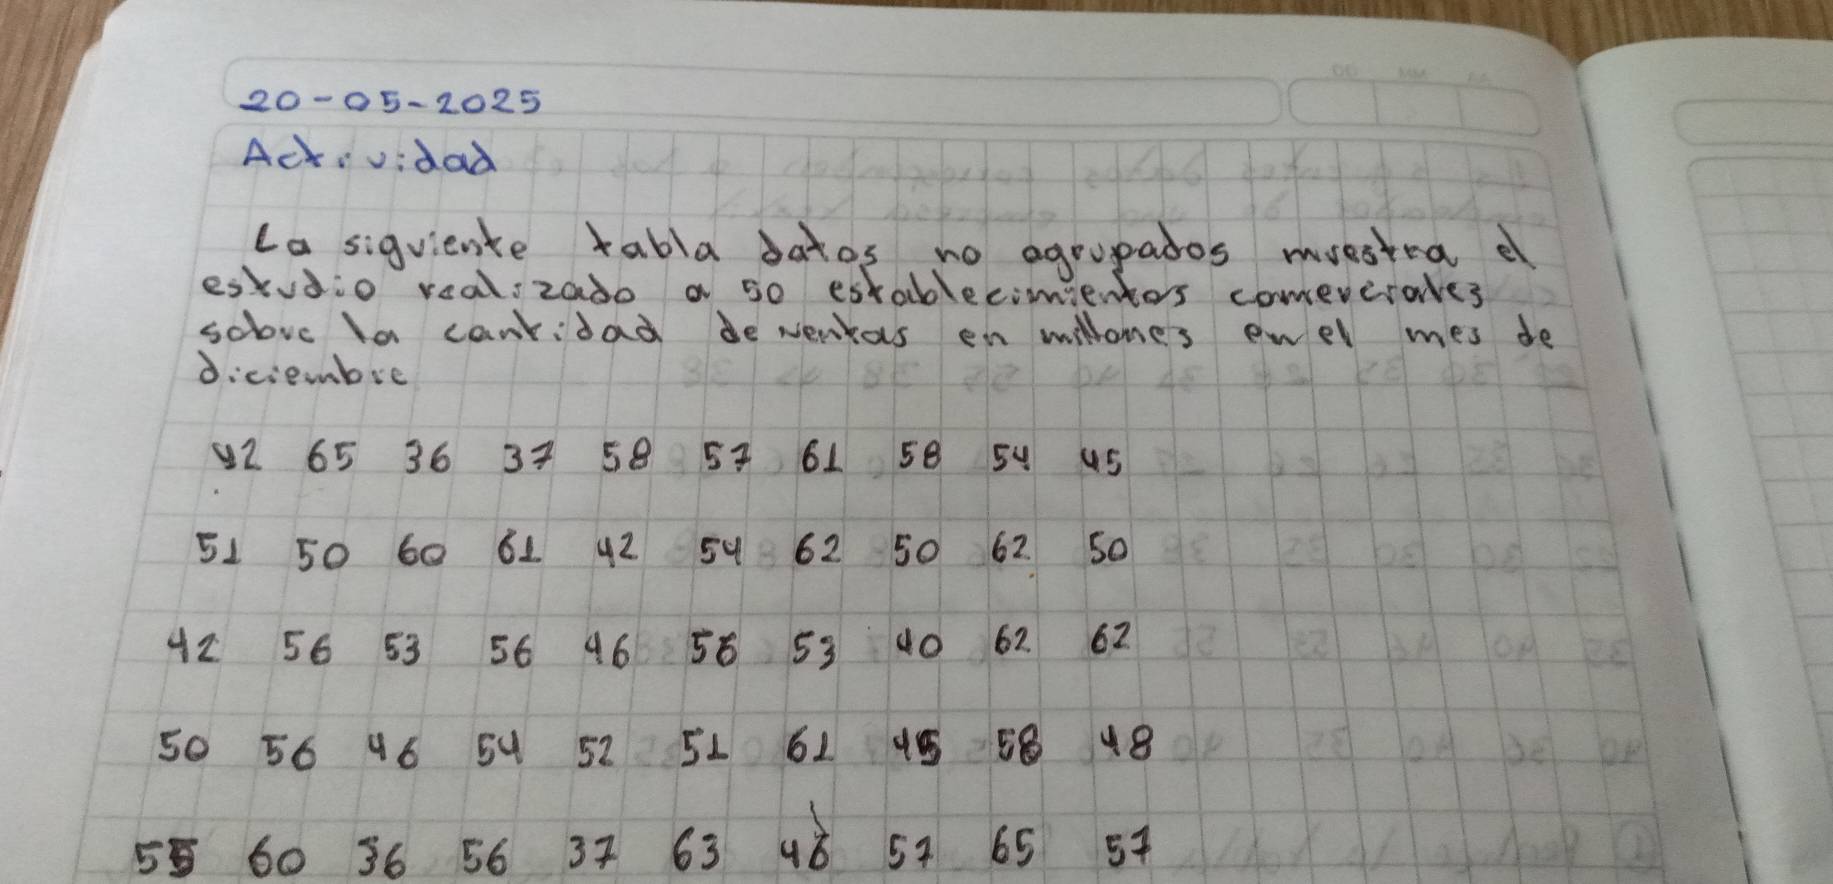 20-05-2025
Actividad
La siguiente tabla datos no agrupados muestra el
estudio realizado a 50 establecimientos comerciales
sobre la cantidad de ventas en millones en el mes de
diciembre
42 65 36 37 58 57 61 58 54 45
51 50 60 61 42 54 62 50 62 50
42 56 53 56 46 56 53 40 62 62
50 56 46 54 52 51 61 45 58 48
55 60 36 56 37 63 57 65 57